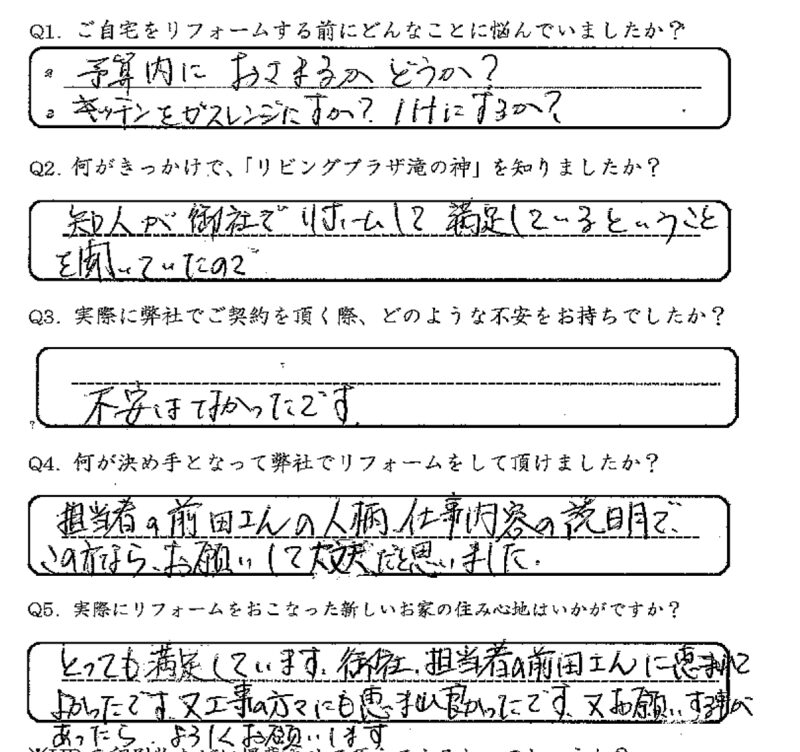 Q1. ご自宅をリフォームする前にどんなことに悩んでいましたか?
。予算内に おさまるか どうか?
。キッチンをガスレンジにすか? IHにするか?
Q2. 何がきっかけで、「リビングプラザ滝の神」を知りましたか?
知人が御社でリホームして満足しているということ
を聞いていたので
Q3. 実際に弊社でご契約を頂く際、どのような不安をお持ちでしたか?
不安はなかったです。
Q4. 何が決め手となって弊社でリフォームをして頂けましたか?
担当者の前田さんの人柄、仕事内容の説明で、
この方なら、お願いして大丈夫だと思いました。
Q5. 実際にリフォームをおこなった新しいお家の住み心地はいかがですか?
とっても満足しています。御社、担当者の前田さんに恵まれて
よかったです。又工事の方々にも恵まれ良かったです。又お願いする事が
あったら、よろしくお願いします